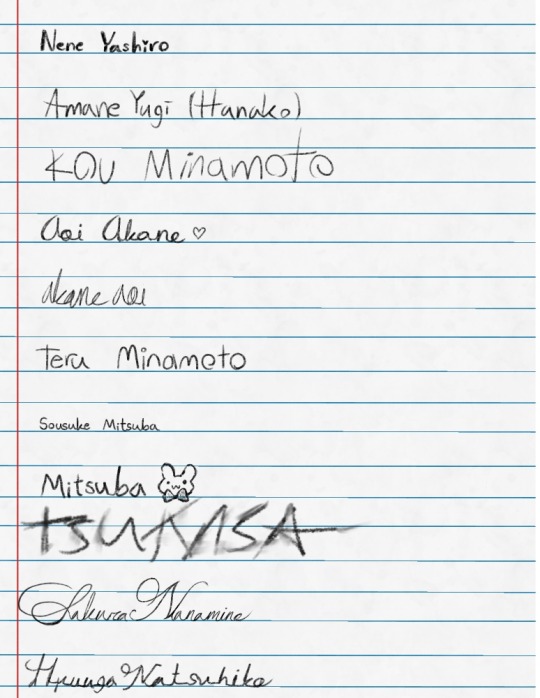 Nene Yashiro
Amane Yugi (Hanako)
Kou Minamoto
Aoi Akane ♡
Akane Aoi
Teru Minamoto
Sousuke Mitsuba
Mitsuba
TSUKASA
Sakura Nanamine
Hyuuga Natsuhiko